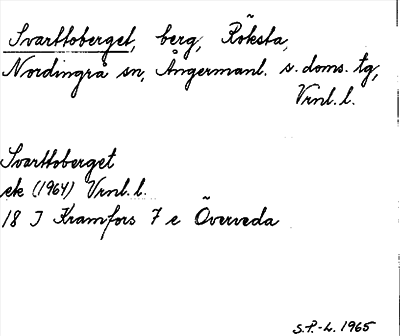 Svarttoberget, berg, Röksta,
Nordingrå sn, Ångermanl. s. doms. tg,
Vrnl. l.
Svarttoberget
ek (1964) Vrnl. l.
18 I Kramfors 7 e Överveda
S.P.-L. 1965